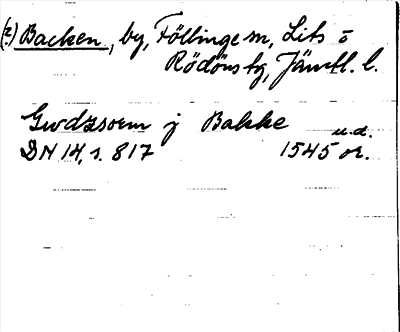 (2.) Backen, by, Föllinge sn, Lits o
Rödöns tg, Jämtl. l.
Gwdzsorm j Bakke u.d.
DN 14, s. 817 1545 or.